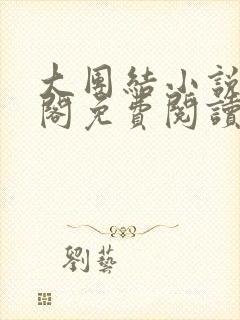 大團結小說
閣免費閱讀
劉藝